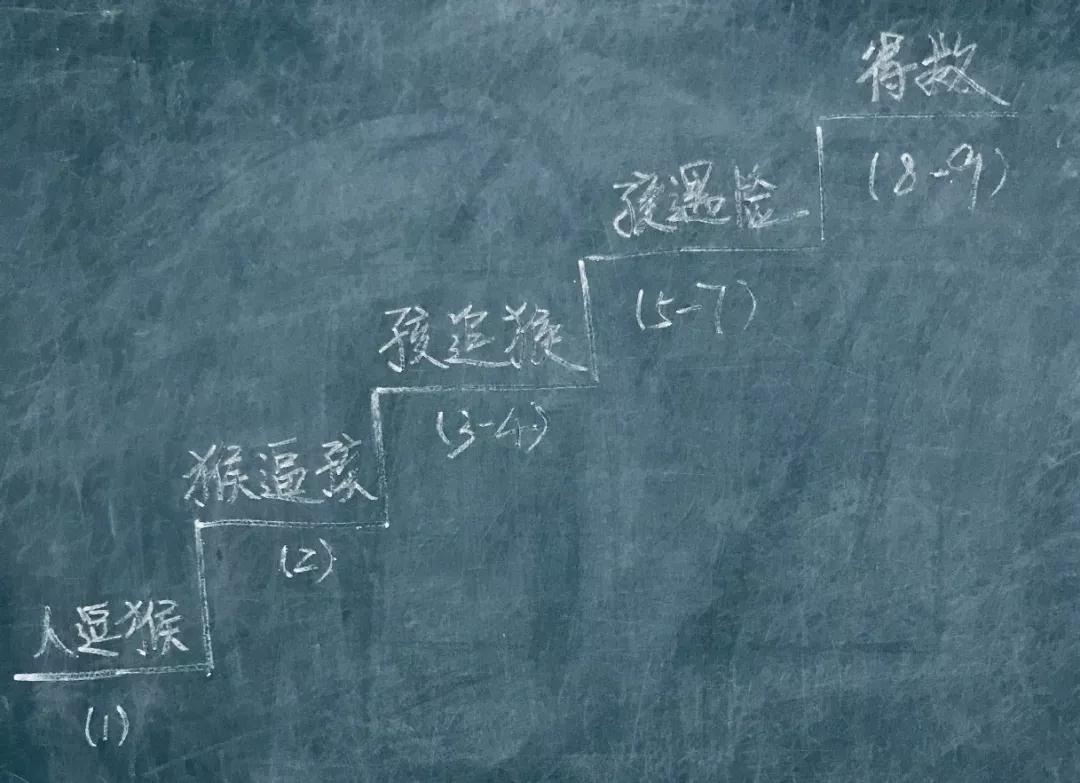 人逗猴
(1)
猴逼孩
(2)
孩追猴
(3-4)
孩遇险
(5-7)
得救
(8-9)